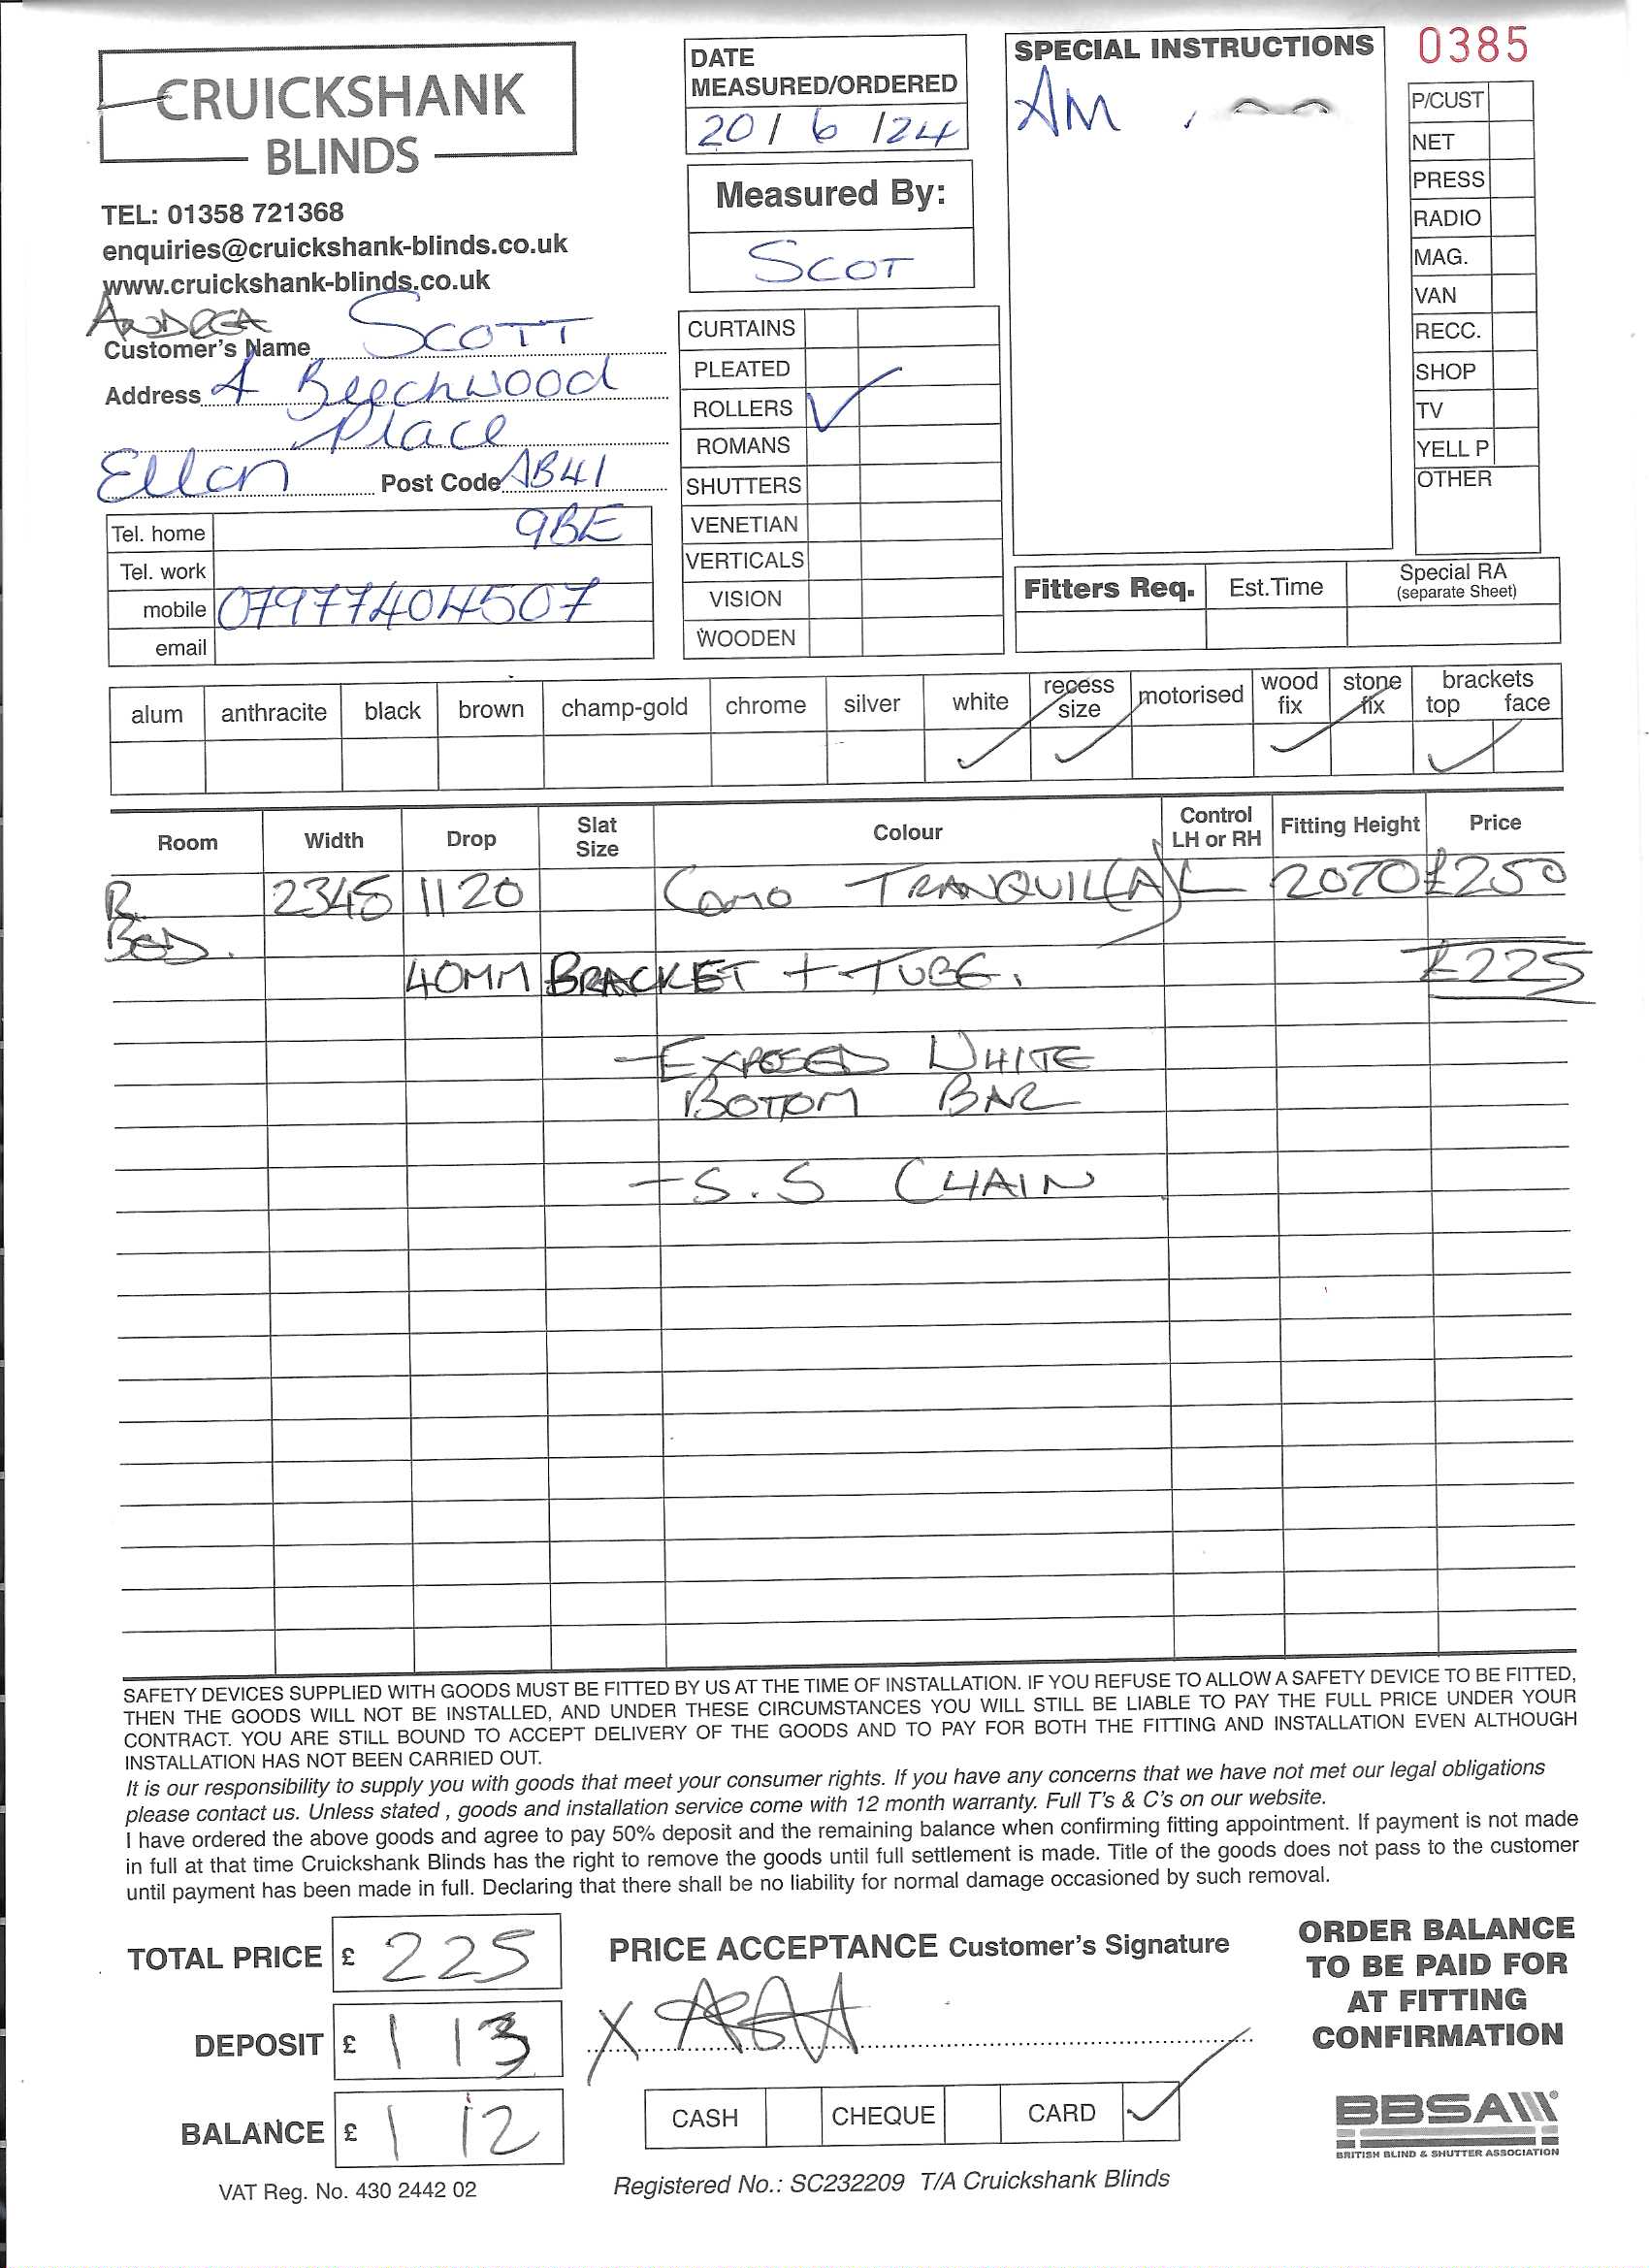 CRUICKSHANK
BLINDS
TEL: 01358 721368
enquiries@cruickshank-blinds.co.uk
www.cruickshank-blinds.co.uk
DATE
MEASURED/ORDERED
20/6/24
Measured By:
SCOT
SPECIAL INSTRUCTIONS
AM
0385
P/CUST
NET
PRESS
RADIO
MAG.
VAN
RECC.
SHOP
TV
YELL P
OTHER
ANDREA SCOTT
Customer's Name
Address 4 Beechwood
Place
Ellon Post Code AB41
9BE
Tel. home
Tel. work
mobile 07977404507
email
CURTAINS
PLEATED
ROLLERS ✓
ROMANS
SHUTTERS
VENETIAN
VERTICALS
VISION
WOODEN
Fitters Req. Est.Time Special RA
(separate Sheet)
alum anthracite black brown champ-gold chrome silver white recess size motorised wood fix stone fix brackets top face
✓ ✓ ✓ ✓
Room Width Drop Slat Size Colour Control LH or RH Fitting Height Price
R 2345 1120 COMO TRANQUIL(A) L 2070 £250
BED.
40MM BRACKET + TUBE. £225
- EXPOSED WHITE
BOTTOM BAR
- S.S CHAIN
SAFETY DEVICES SUPPLIED WITH GOODS MUST BE FITTED BY US AT THE TIME OF INSTALLATION. IF YOU REFUSE TO ALLOW A SAFETY DEVICE TO BE FITTED,
THEN THE GOODS WILL NOT BE INSTALLED, AND UNDER THESE CIRCUMSTANCES YOU WILL STILL BE LIABLE TO PAY THE FULL PRICE UNDER YOUR
CONTRACT. YOU ARE STILL BOUND TO ACCEPT DELIVERY OF THE GOODS AND TO PAY FOR BOTH THE FITTING AND INSTALLATION EVEN ALTHOUGH
INSTALLATION HAS NOT BEEN CARRIED OUT.
It is our responsibility to supply you with goods that meet your consumer rights. If you have any concerns that we have not met our legal obligations
please contact us. Unless stated , goods and installation service come with 12 month warranty. Full T's & C's on our website.
I have ordered the above goods and agree to pay 50% deposit and the remaining balance when confirming fitting appointment. If payment is not made
in full at that time Cruickshank Blinds has the right to remove the goods until full settlement is made. Title of the goods does not pass to the customer
until payment has been made in full. Declaring that there shall be no liability for normal damage occasioned by such removal.
TOTAL PRICE £ 225
DEPOSIT £ 113
BALANCE £ 112
VAT Reg. No. 430 2442 02
PRICE ACCEPTANCE Customer's Signature
X
CASH CHEQUE CARD ✓
Registered No.: SC232209 T/A Cruickshank Blinds
ORDER BALANCE
TO BE PAID FOR
AT FITTING
CONFIRMATION
BBSA
BRITISH BLIND & SHUTTER ASSOCIATION